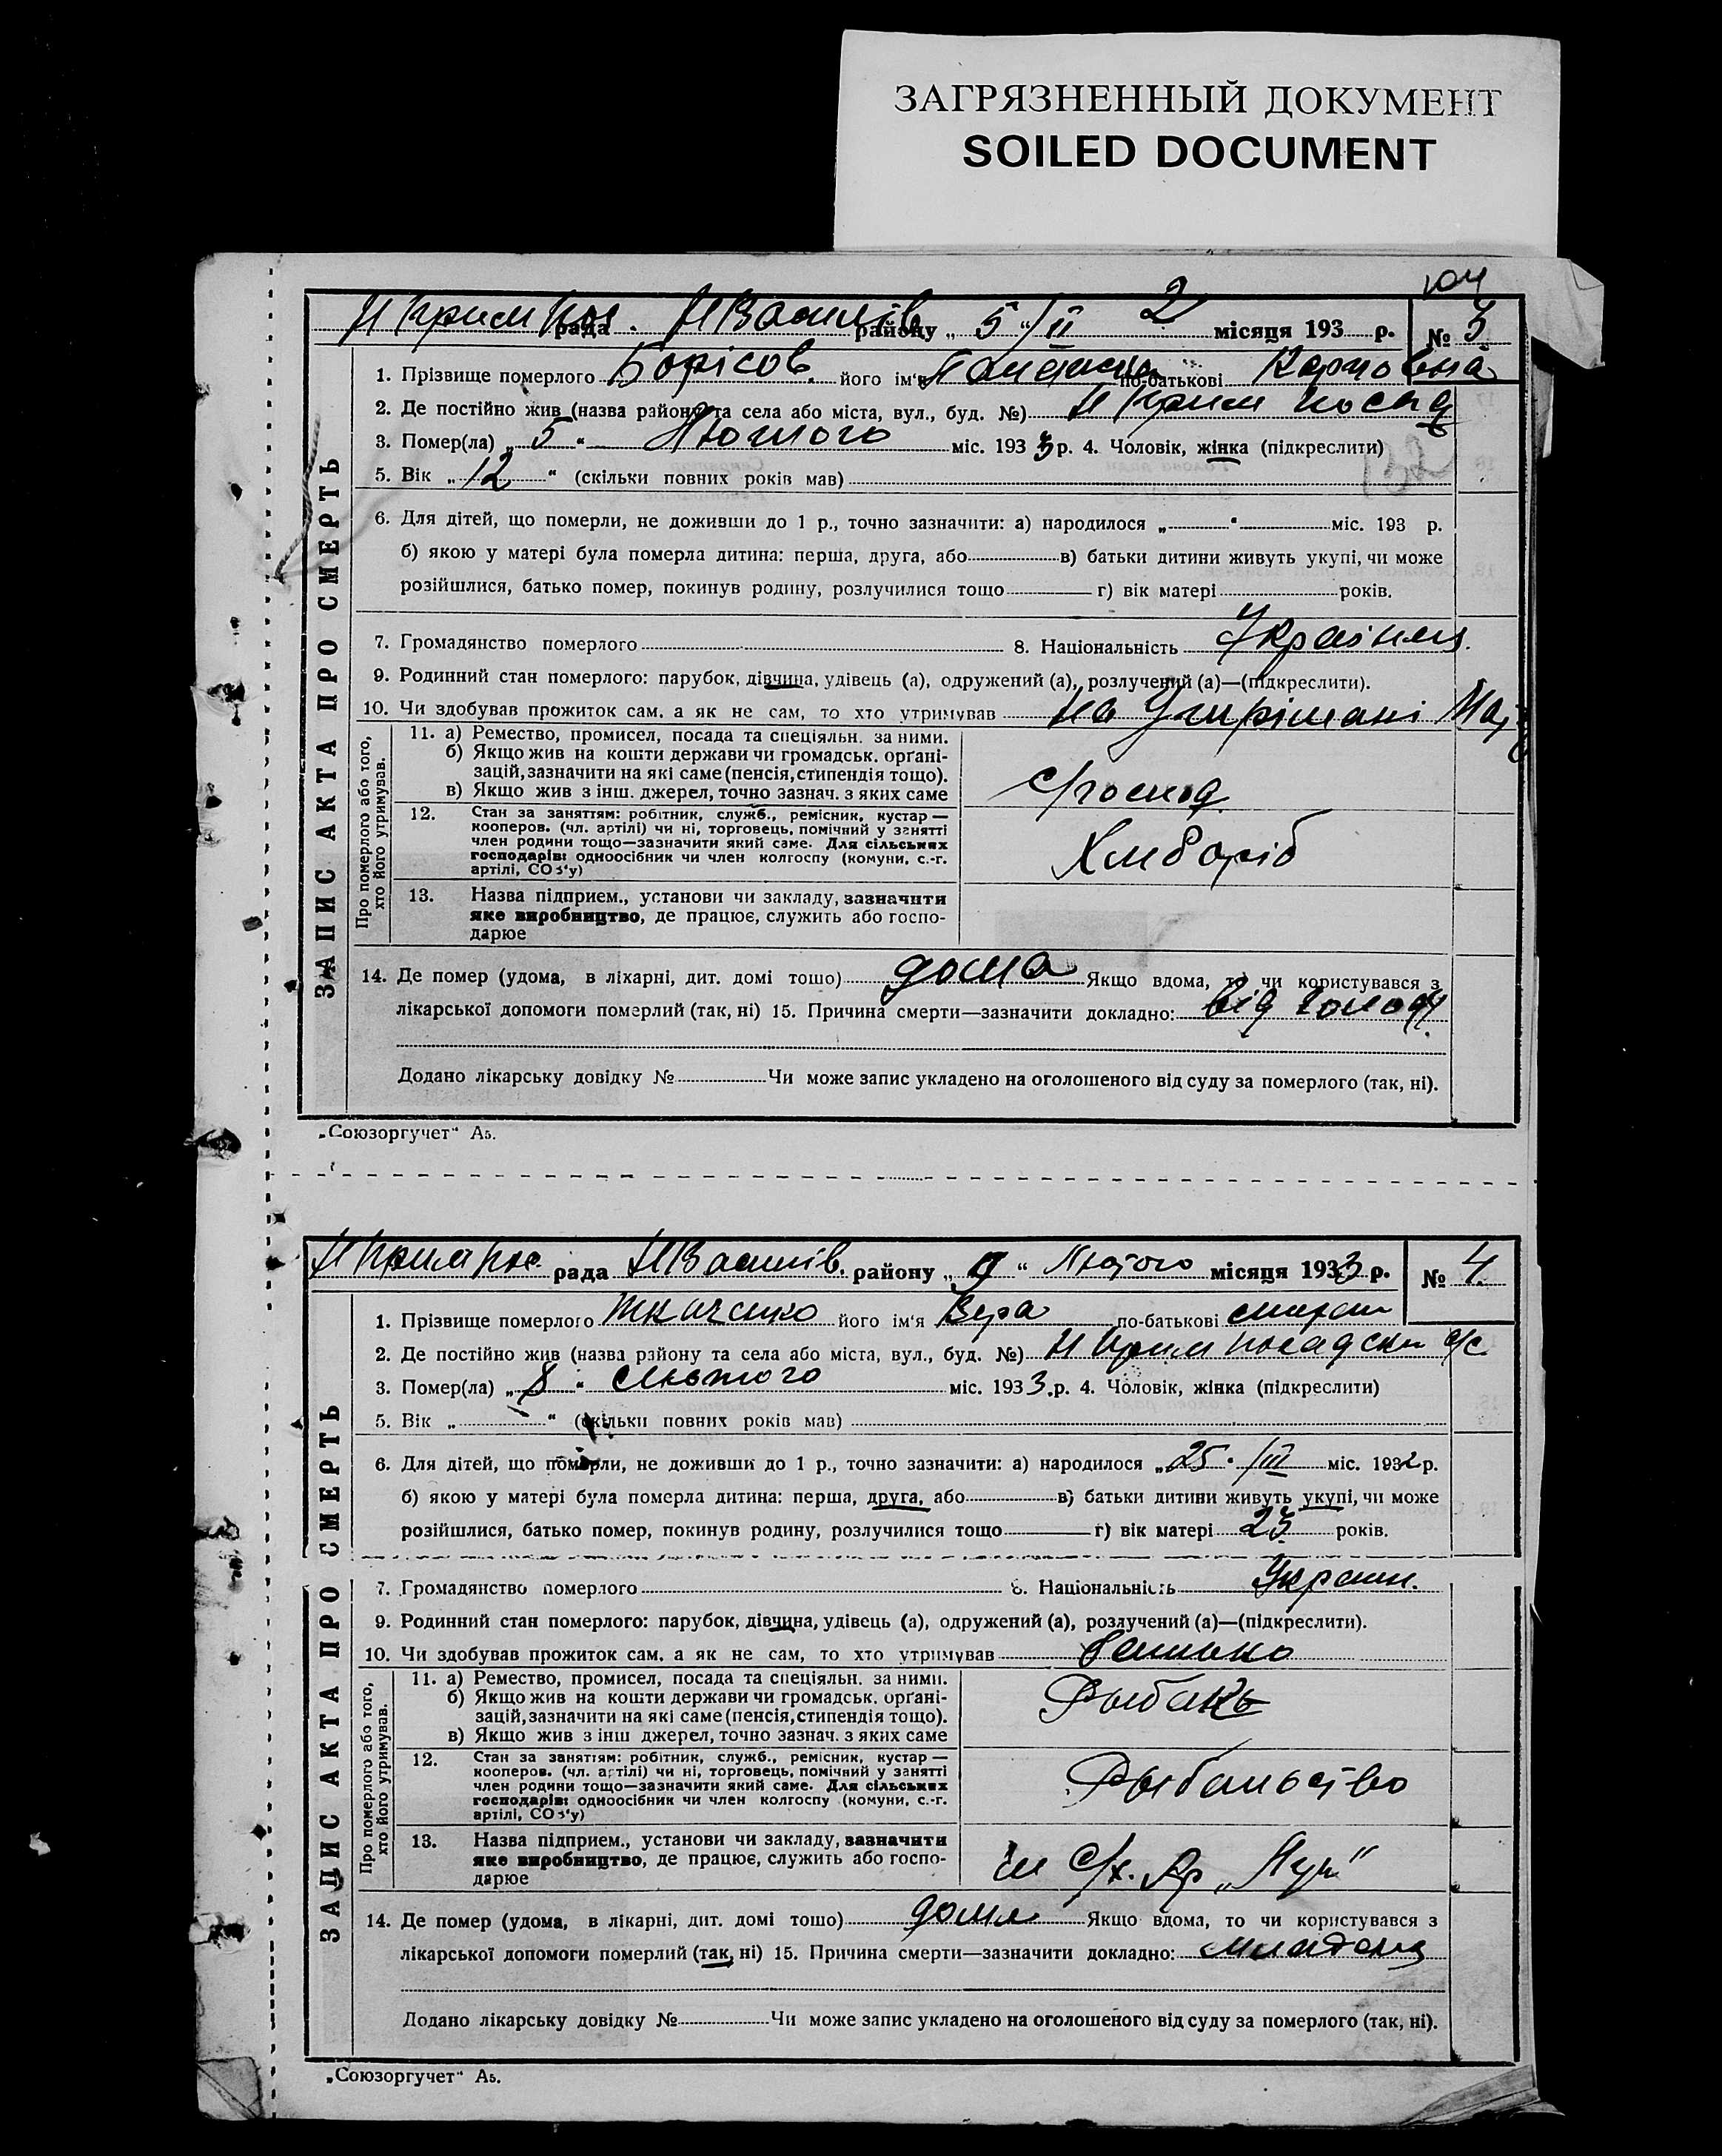 ЗАГРЯЗНЕННЫЙ ДОКУМЕНТ
SOILED DOCUMENT
104
рада району „ 5 “ /II 2 місяця 193 р. № 3
1. Прізвище померлого Борісов його ім'я по-батькові Карповна
2. Де постійно жив (назва району та села або міста, вул., буд. №) Н Крим посад
3. Помер(ла) „ 5 “ Лютого міс. 193 3 р. 4. Чоловік, жінка (підкреслити)
5. Вік „ 12 “ (скільки повних років мав)
6. Для дітей, що померли, не доживши до 1 р., точно зазначити: а) народилося „ “ міс. 193 р.
б) якою у матері була померла дитина: перша, друга, або в) батьки дитини живуть укупі, чи може
розійшлися, батько помер, покинув родину, розлучилися тощо г) вік матері років.
7. Громадянство померлого 8. Національність
9. Родинний стан померлого: парубок, дівчина, удівець (а), одружений (а), розлучений (а)—(підкреслити).
10. Чи здобував прожиток сам, а як не сам, то хто утримував на
Про померлого або того, хто його утримував.
11. а) Ремество, промисел, посада та спеціяльн. за ними.
б) Якщо жив на кошти держави чи громадськ. орґані-
зацій, зазначити на які саме (пенсія, стипендія тощо).
в) Якщо жив з інш. джерел, точно зазнач. з яких саме
12. Стан за заняттям: робітник, служб., ремісник, кустар —
кооперов. (чл. артілі) чи ні, торговець, помічний у занятті
член родини тощо—зазначити який саме. Для сільських
господарів: одноосібник чи член колгоспу (комуни, с.-г.
артілі, СОЗ'у)
Хлібороб
13. Назва підприєм., установи чи закладу, зазначити
яке виробництво, де працює, служить або госпо-
дарює
14. Де помер (удома, в лікарні, дит. домі тощо) дома Якщо вдома, то чи користувався з
лікарської допомоги померлий (так, ні) 15. Причина смерти—зазначити докладно: від голоду
Додано лікарську довідку № Чи може запис укладено на оголошеного від суду за померлого (так, ні).
ЗАПИС АКТА ПРО СМЕРТЬ
„Союзоргучет“ А5.
рада району „ “ Лютого місяця 193 3 р. № 4
1. Прізвище померлого Ткаченко його ім'я Вера по-батькові
2. Де постійно жив (назва району та села або міста, вул., буд. №) Н Крим посадськ с/с
3. Помер(ла) „ 8 “ Лютого міс. 193 3 р. 4. Чоловік, жінка (підкреслити)
5. Вік „ “ (скільки повних років мав)
6. Для дітей, що померли, не доживши до 1 р., точно зазначити: а) народилося „ 25 “ /III міс. 1932 р.
б) якою у матері була померла дитина: перша, друга, або в) батьки дитини живуть укупі, чи може
розійшлися, батько помер, покинув родину, розлучилися тощо г) вік матері 23 років.
7. Громадянство померлого 8. Національність
9. Родинний стан померлого: парубок, дівчина, удівець (а), одружений (а), розлучений (а)—(підкреслити).
10. Чи здобував прожиток сам, а як не сам, то хто утримував батько
Про померлого або того, хто його утримував.
11. а) Ремество, промисел, посада та спеціяльн. за ними.
б) Якщо жив на кошти держави чи громадськ. орґані-
зацій, зазначити на які саме (пенсія, стипендія тощо).
в) Якщо жив з інш джерел, точно зазнач. з яких саме
Рыбакъ
12. Стан за заняттям: робітник, служб., ремісник, кустар —
кооперов. (чл. артілі) чи ні, торговець, помічний у занятті
член родини тощо—зазначити який саме. Для сільських
господарів: одноосібник чи член колгоспу (комуни, с.-г.
артілі, СОЗ'у)
13. Назва підприєм., установи чи закладу, зазначити
яке виробництво, де працює, служить або госпо-
дарює
14. Де помер (удома, в лікарні, дит. домі тощо) дома Якщо вдома, то чи користувався з
лікарської допомоги померлий (так, ні) 15. Причина смерти—зазначити докладно:
Додано лікарську довідку № Чи може запис укладено на оголошеного від суду за померлого (так, ні).
ЗАПИС АКТА ПРО СМЕРТЬ
„Союзоргучет“ А5.